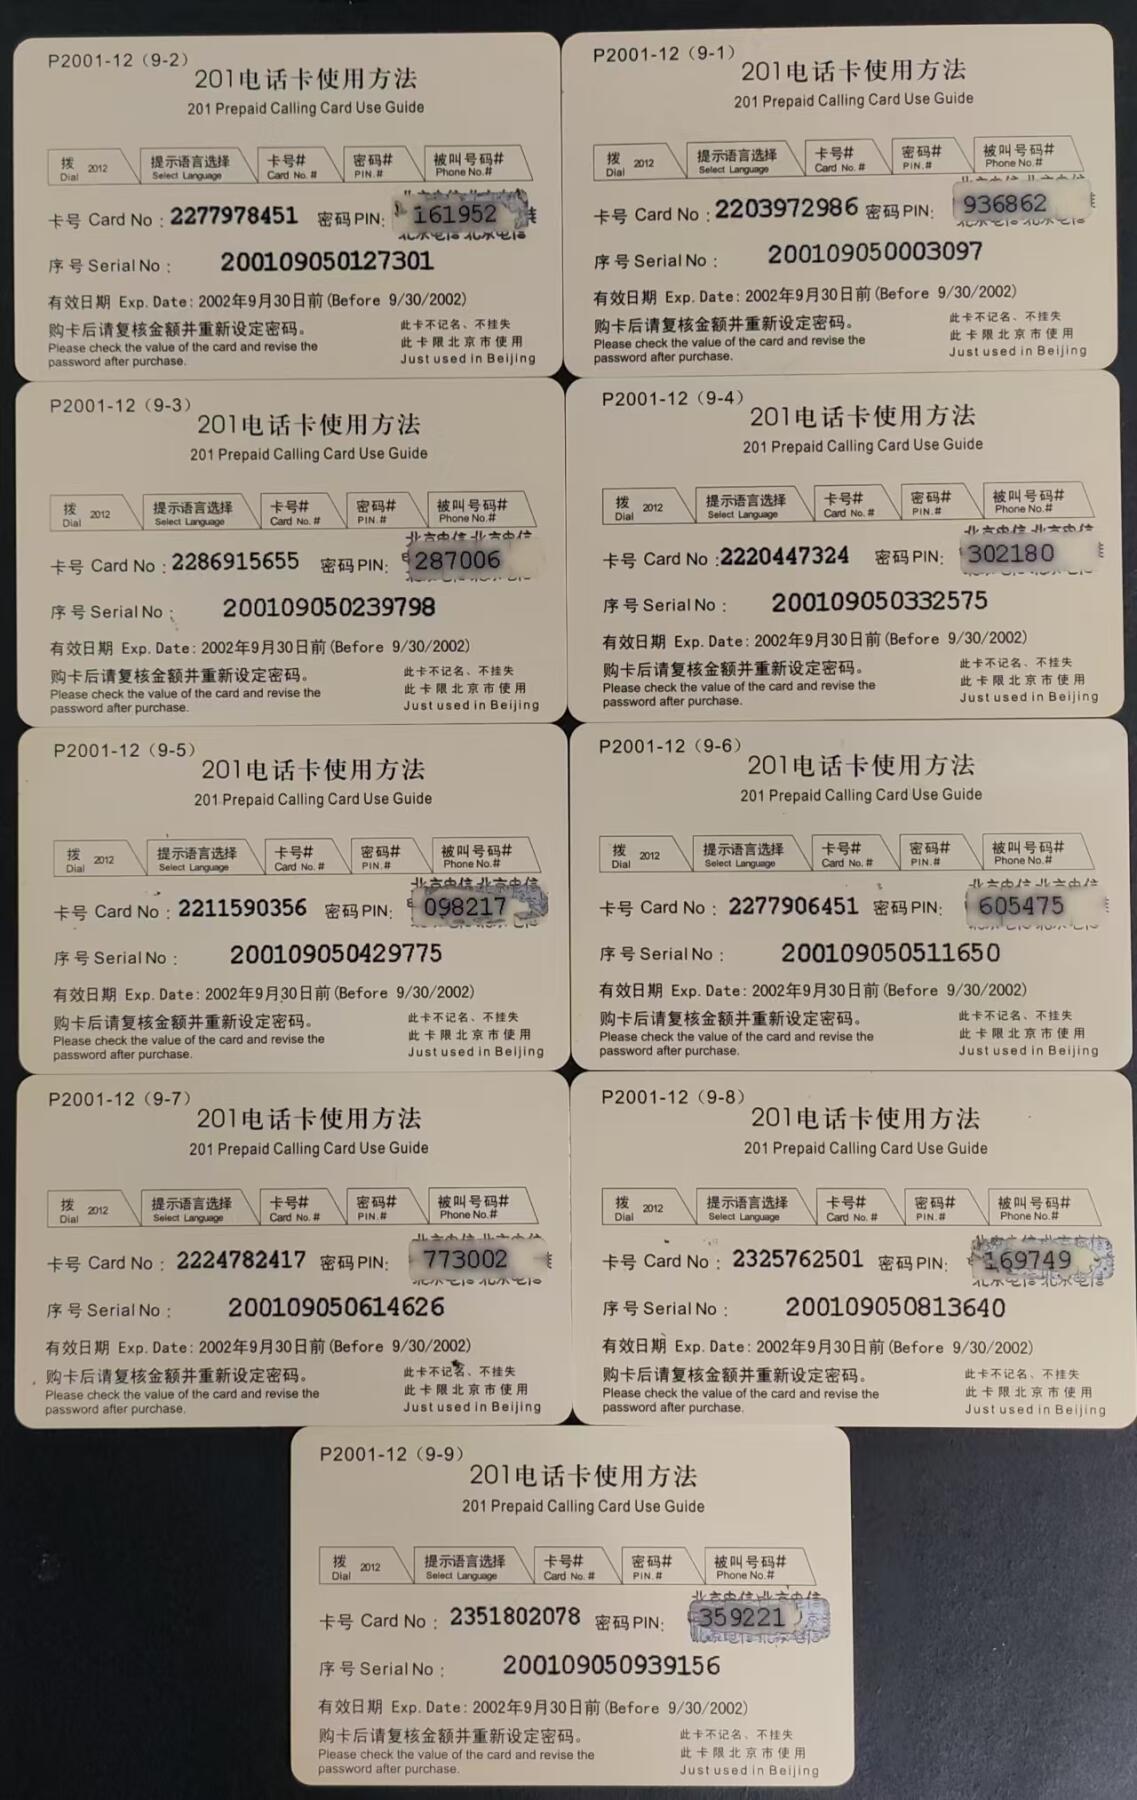 P2001-12（9-2）
201电话卡使用方法
201 Prepaid Calling Card Use Guide
拨 2012 提示语言选择 卡号# 密码# 被叫号码#
Dial Select Language Card No. # PIN.# Phone No.#
卡号 Card No : 2277978451 密码PIN: 161952
序号Serial No : 200109050127301
有效日期 Exp. Date: 2002年9月30日前(Before 9/30/2002)
购卡后请复核金额并重新设定密码。
Please check the value of the card and revise the
password after purchase.
此卡不记名、不挂失
此卡限北京市使用
Just used in Beijing
P2001-12（9-1）
201电话卡使用方法
201 Prepaid Calling Card Use Guide
拨 2012 提示语言选择 卡号# 密码# 被叫号码#
Dial Select Language Card No. # PIN.# Phone No.#
卡号 Card No : 2203972986 密码PIN: 936862
序号Serial No : 200109050003097
有效日期 Exp. Date: 2002年9月30日前(Before 9/30/2002)
购卡后请复核金额并重新设定密码。
Please check the value of the card and revise the
password after purchase.
此卡不记名、不挂失
此卡限北京市使用
Just used in Beijing
P2001-12（9-3）
201电话卡使用方法
201 Prepaid Calling Card Use Guide
拨 2012 提示语言选择 卡号# 密码# 被叫号码#
Dial Select Language Card No. # PIN.# Phone No.#
北京电信 北京电信
卡号 Card No : 2286915655 密码PIN: 287006
序号Serial No : 200109050239798
有效日期 Exp. Date: 2002年9月30日前(Before 9/30/2002)
购卡后请复核金额并重新设定密码。
Please check the value of the card and revise the
password after purchase.
此卡不记名、不挂失
此卡限北京市使用
Just used in Beijing
P2001-12（9-4）
201电话卡使用方法
201 Prepaid Calling Card Use Guide
拨 2012 提示语言选择 卡号# 密码# 被叫号码#
Dial Select Language Card No. # PIN.# Phone No.#
北京电信 北京电信
卡号 Card No :2220447324 密码PIN: 302180
序号Serial No : 200109050332575
有效日期 Exp. Date: 2002年9月30日前(Before 9/30/2002)
购卡后请复核金额并重新设定密码。
Please check the value of the card and revise the
password after purchase.
此卡不记名、不挂失
此卡限北京市使用
Just used in Beijing
P2001-12（9-5）
201电话卡使用方法
201 Prepaid Calling Card Use Guide
拨 2012 提示语言选择 卡号# 密码# 被叫号码#
Dial Select Language Card No. # PIN.# Phone No.#
北京电信 北京电信
卡号 Card No : 2211590356 密码PIN: 098217
序号Serial No : 200109050429775
有效日期 Exp. Date: 2002年9月30日前(Before 9/30/2002)
购卡后请复核金额并重新设定密码。
Please check the value of the card and revise the
password after purchase.
此卡不记名、不挂失
此卡限北京市使用
Just used in Beijing
P2001-12（9-6）
201电话卡使用方法
201 Prepaid Calling Card Use Guide
拨 2012 提示语言选择 卡号# 密码# 被叫号码#
Dial Select Language Card No. # PIN.# Phone No.#
卡号 Card No : 2277906451 密码PIN: 605475
序号Serial No : 200109050511650
有效日期 Exp. Date: 2002年9月30日前(Before 9/30/2002)
购卡后请复核金额并重新设定密码。
Please check the value of the card and revise the
password after purchase.
此卡不记名、不挂失
此卡限北京市使用
Just used in Beijing
P2001-12（9-7）
201电话卡使用方法
201 Prepaid Calling Card Use Guide
拨 2012 提示语言选择 卡号# 密码# 被叫号码#
Dial Select Language Card No. # PIN.# Phone No.#
卡号 Card No : 2224782417 密码PIN: 773002
序号Serial No : 200109050614626
有效日期 Exp. Date: 2002年9月30日前(Before 9/30/2002)
购卡后请复核金额并重新设定密码。
Please check the value of the card and revise the
password after purchase.
此卡不记名、不挂失
此卡限北京市使用
Just used in Beijing
P2001-12（9-8）
201电话卡使用方法
201 Prepaid Calling Card Use Guide
拨 2012 提示语言选择 卡号# 密码# 被叫号码#
Dial Select Language Card No. # PIN.# Phone No.#
卡号 Card No : 2325762501 密码PIN: 169749
序号Serial No : 200109050813640
有效日期 Exp. Date: 2002年9月30日前(Before 9/30/2002)
购卡后请复核金额并重新设定密码。
Please check the value of the card and revise the
password after purchase.
此卡不记名、不挂失
此卡限北京市使用
Just used in Beijing
P2001-12（9-9）
201电话卡使用方法
201 Prepaid Calling Card Use Guide
拨 2012 提示语言选择 卡号# 密码# 被叫号码#
Dial Select Language Card No. # PIN.# Phone No.#
北京电信 北京电信
卡号 Card No : 2351802078 密码PIN: 359221
序号Serial No : 200109050939156
有效日期 Exp. Date: 2002年9月30日前(Before 9/30/2002)
购卡后请复核金额并重新设定密码。
Please check the value of the card and revise the
password after purchase.
此卡不记名、不挂失
此卡限北京市使用
Just used in Beijing